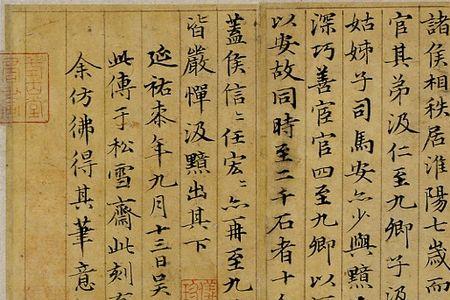 諸侯相秩居淮陽七歲而
官其弟汲仁至九卿子汲
姑姊子司馬安亦少與黯
深巧善宦官四至九卿以
以安故同時至二千石者十
蓋侯信〻任宏〻亦再至九
皆嚴憚汲黯出其下
延祐桼年九月十三日吴
此傳于松雪齋此刻有
余仿彿得其筆意